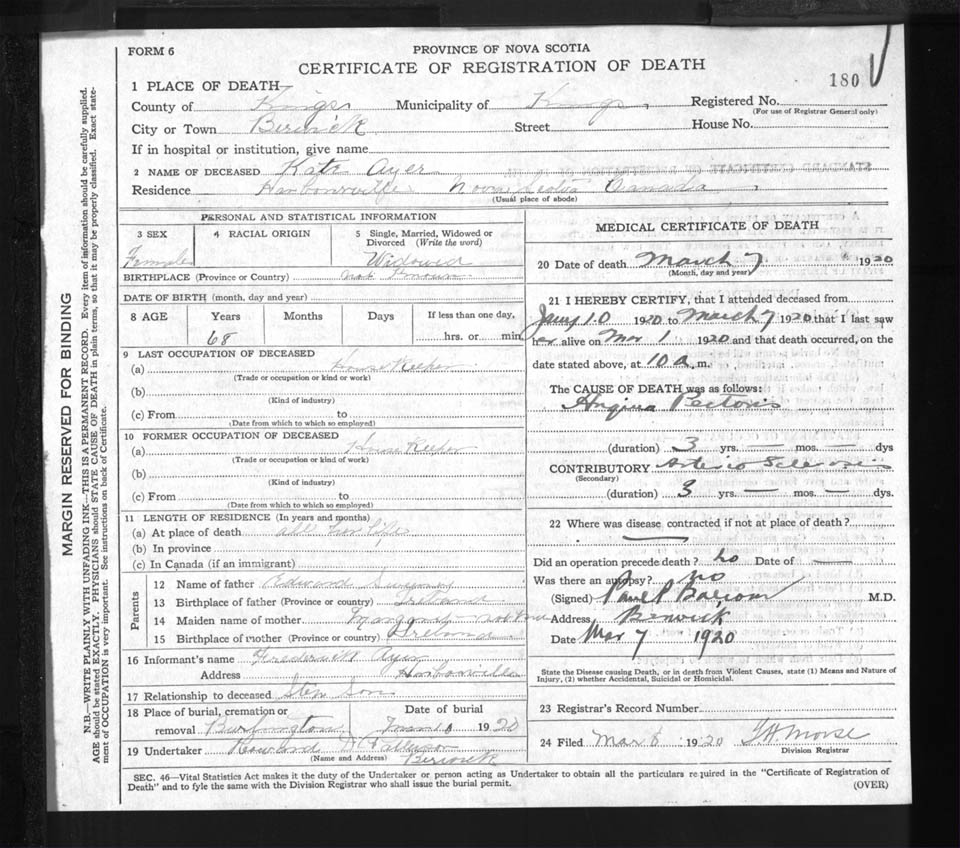 FORM 6
PROVINCE OF NOVA SCOTIA
CERTIFICATE OF REGISTRATION OF DEATH
180
1 PLACE OF DEATH
County of Kings Municipality of Kings Registered No.
(For use of Registrar General only)
City or Town Berwick Street House No.
If in hospital or institution, give name
2 NAME OF DECEASED Kate Ayer
Residence Harbourville Nova Scotia Canada
(Usual place of abode)
PERSONAL AND STATISTICAL INFORMATION
3 SEX Female
4 RACIAL ORIGIN
5 Single, Married, Widowed or Divorced (Write the word) Widowed
BIRTHPLACE (Province or Country) not known
DATE OF BIRTH (month, day and year)
8 AGE Years Months Days If less than one day,
68 hrs. or min.
9 LAST OCCUPATION OF DECEASED
(a) House Keeper
(Trade or occupation or kind or work)
(b)
(Kind of industry)
(c) From to
(Date from which to which so employed)
10 FORMER OCCUPATION OF DECEASED
(a) House Keeper
(Trade or occupation or kind of work)
(b)
(Kind of industry)
(c) From to
(Date from which to which so employed)
11 LENGTH OF RESIDENCE (In years and months)
(a) At place of death all her life
(b) In province
(c) In Canada (if an immigrant)
Parents
12 Name of father Edward
13 Birthplace of father (Province or country) Ireland
14 Maiden name of mother Margaret
15 Birthplace of mother (Province or country) Ireland
16 Informant's name Frederick Ayer
Address Harbourville
17 Relationship to deceased Step Son
18 Place of burial, cremation or removal Burlington
Date of burial 10 1920
19 Undertaker Howland
(Name and Address) Berwick
MEDICAL CERTIFICATE OF DEATH
20 Date of death March 7 1920
(Month, day and year)
21 I HEREBY CERTIFY, that I attended deceased from
Jany 10 1920 to March 7 1920 that I last saw
her alive on Mar 1 1920 and that death occurred, on the
date stated above, at 10 a. m.
The CAUSE OF DEATH was as follows:
Angina Pectoris
(duration) 3 yrs. — mos. — dys
CONTRIBUTORY Arterio Sclerosis
(Secondary)
(duration) 3 yrs. — mos. — dys.
22 Where was disease contracted if not at place of death?
Did an operation precede death? no Date of —
Was there an autopsy? no
(Signed) M.D.
Address Berwick
Date Mar 7 1920
State the Disease causing Death, or in death from Violent Causes, state (1) Means and Nature of
Injury, (2) whether Accidental, Suicidal or Homicidal.
23 Registrar's Record Number
24 Filed Mar 8 1920 Morse
Division Registrar
SEC. 46—Vital Statistics Act makes it the duty of the Undertaker or person acting as Undertaker to obtain all the particulars required in the "Certificate of Registration of
Death" and to fyle the same with the Division Registrar who shall issue the burial permit.
(OVER)
MARGIN RESERVED FOR BINDING
N.B.—WRITE PLAINLY WITH UNFADING INK—THIS IS A PERMANENT RECORD. Every item of information should be carefully supplied.
AGE should be stated EXACTLY. PHYSICIANS should STATE CAUSE OF DEATH in plain terms, so that it may be properly classified. Exact state-
ment of OCCUPATION is very important. See instructions on back of Certificate.